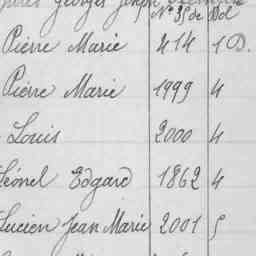 Georges Joseph
N° 35 de Dol
Pierre Marie 414 1 D.
Pierre Marie 1999 4
Louis 2000 4
Léonel Edgard 1862 4
Lucien Jean Marie 2001 5